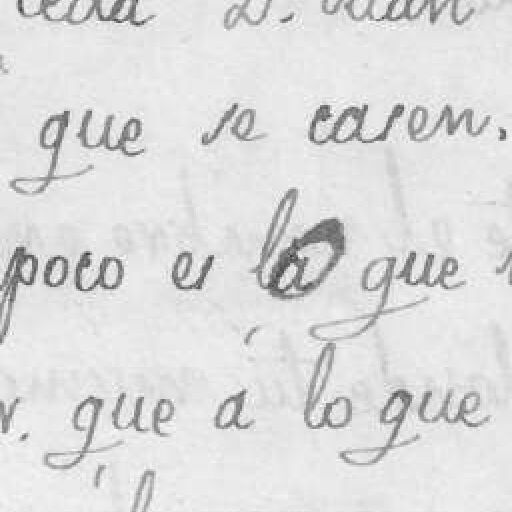 D. Juan
que se casen.
poco es la que
que á lo que